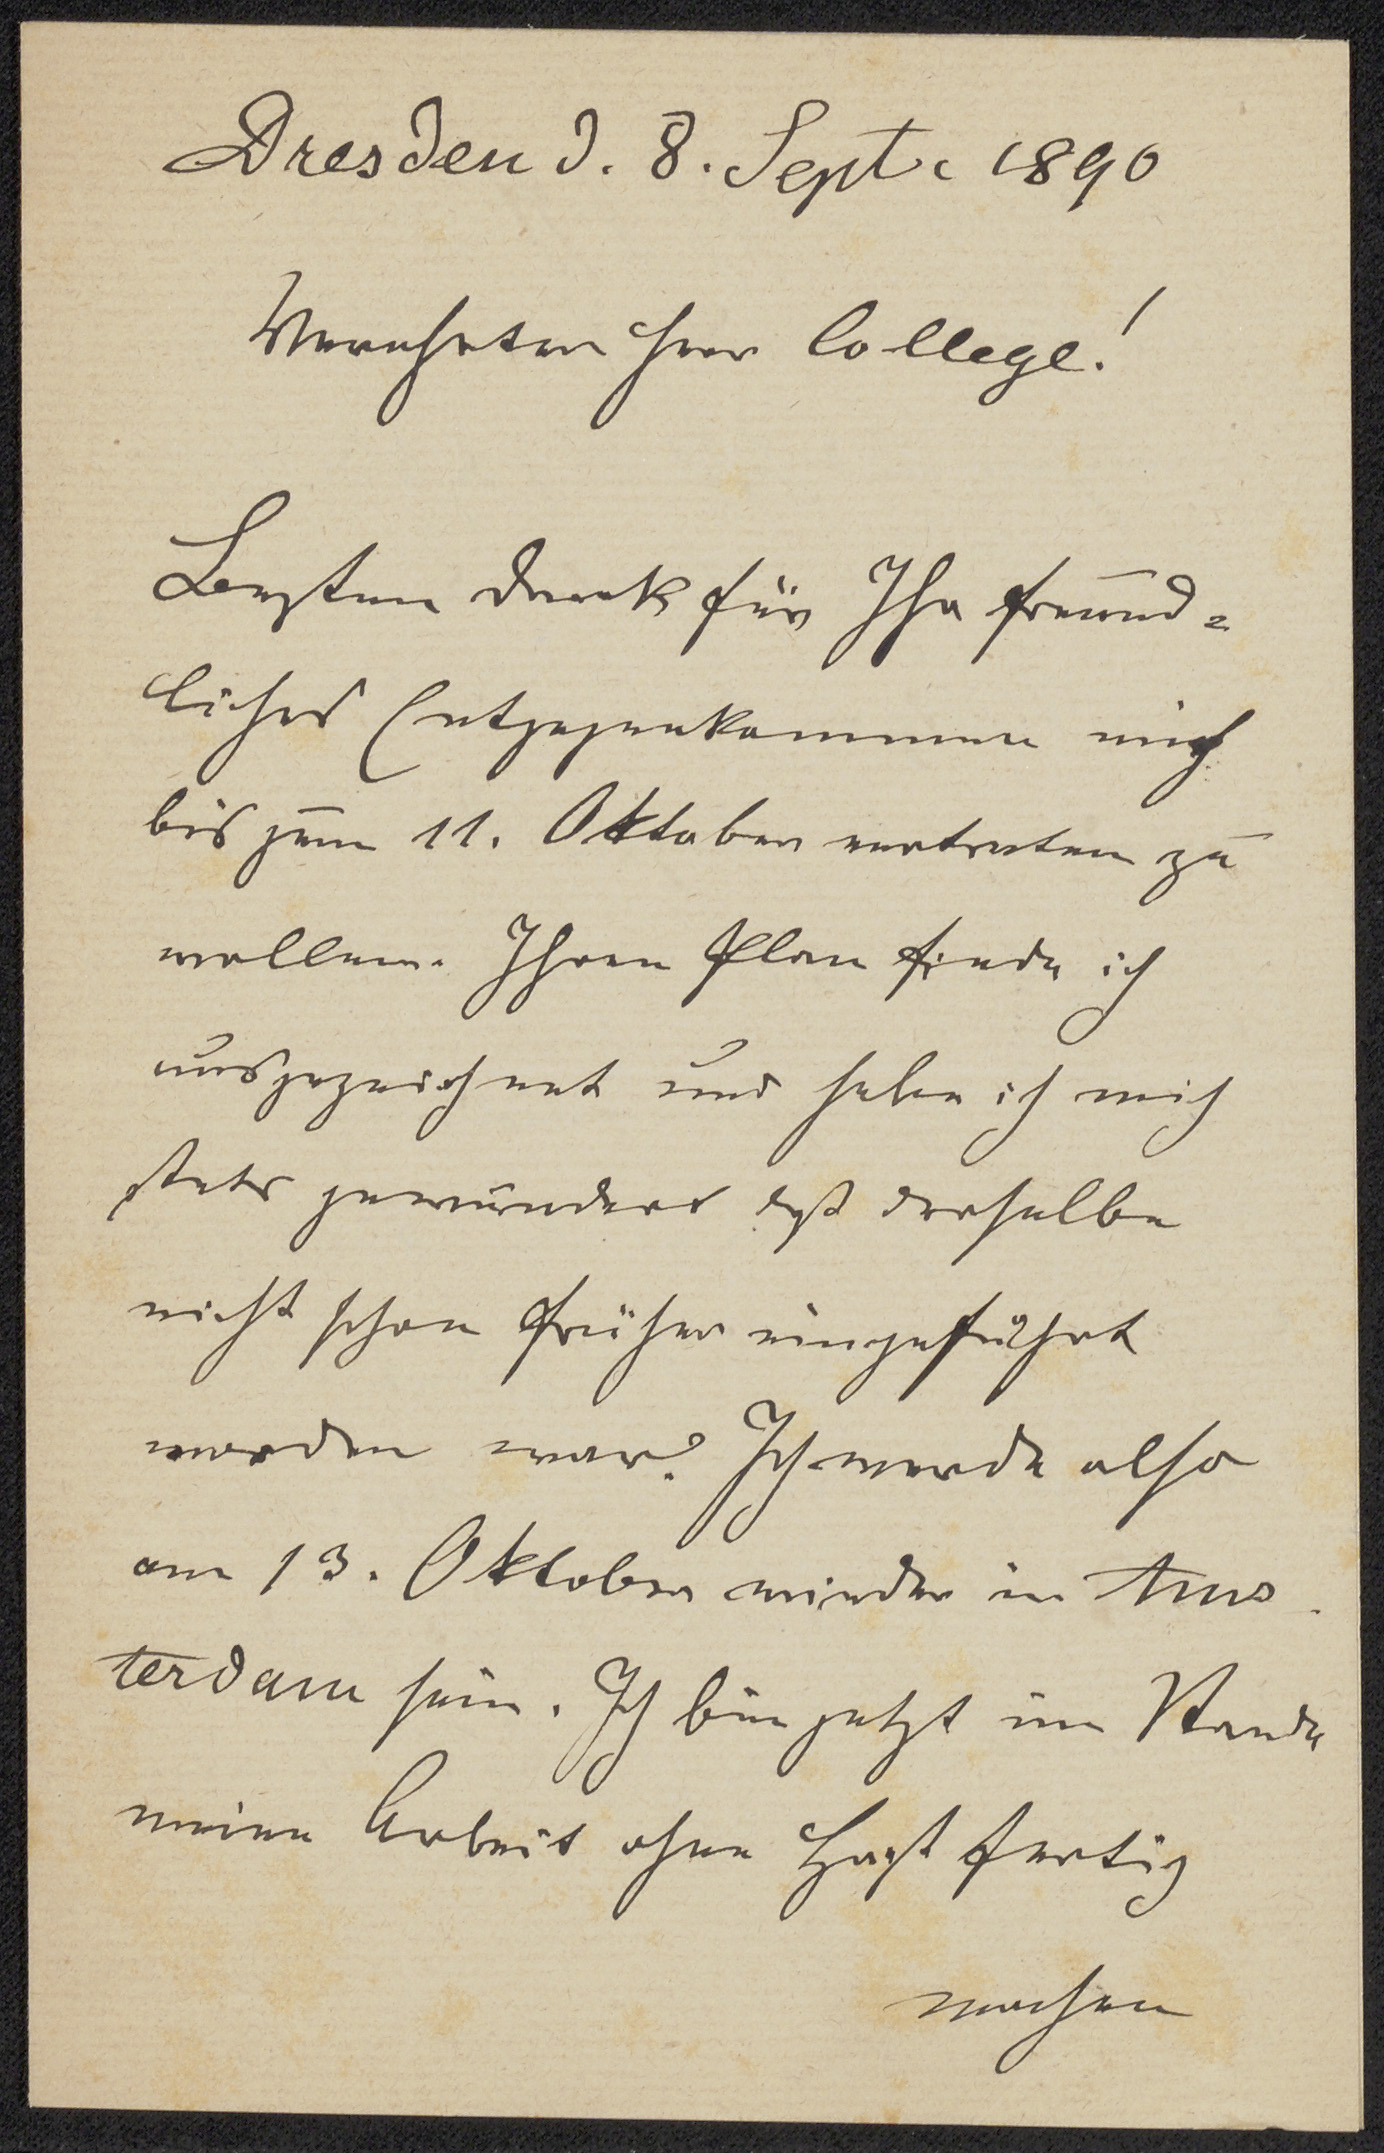 Dresden d. 8. Sept. 1890
Verehrter Herr College!
Besten Dank für Ihr freund-
liches Entgegenkommen mich
bis zum 11. Oktober vertreten zu
wollen. Ihren Plan finde ich
ausgezeichnet und habe ich mich
stets gewundert daß derselbe
nicht schon früher eingeführt
worden war? Ich werde also
am 13. Oktober wieder in Ams-
terdam sein. Ich bin jetzt im Stande
meine Arbeit ohne Hast fertig
machen